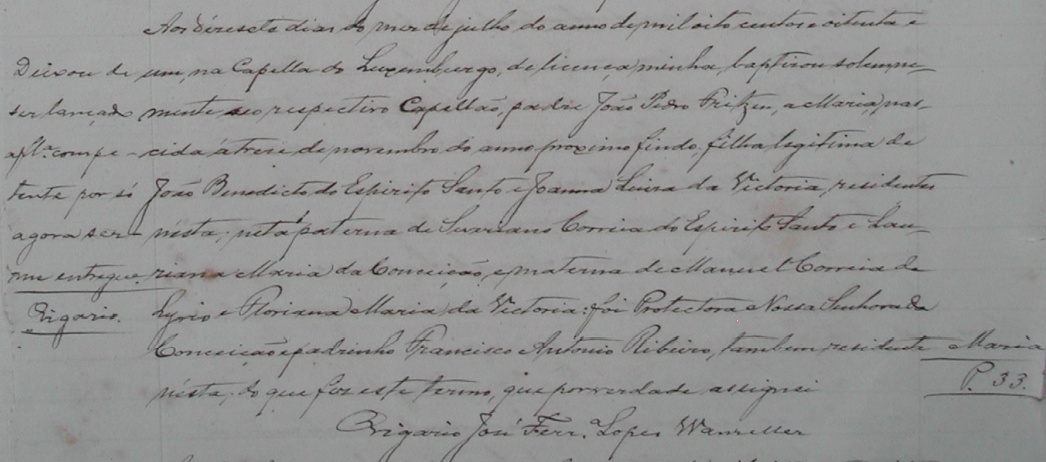 Aos dezesete dias do mez de julho do anno de mil oito centos e oitenta e
um, na Capella do Luxemburgo, de licença minha, baptizou solemne-
mente o respectivo Capellão, padre João Pedro Fritzen, a Maria, nas-
cida á treze de novembro do anno proximo findo, filha legitima de
João Benedicto do Espirito Santo e Joanna Luiza da Victoria, residentes
nésta; neta paterna de Severiano Correia do Espirito Santo e Lau-
riana Maria da Conceição, e materna de Manuel Correia de
Lyrio e Floriana Maria da Victoria: foi Protectora Nossa Senhora da
Conceição e padrinho Francisco Antonio Ribeiro, tambem residente
nésta; do que fiz este termo, que por verdade assignei
Vigario José Ferr.ª Lopes Wanzeller
Deixou de
ser lançado
a fl. compe-
tente por só
agora ser-
me entregue.
Vigario.
Maria
P. 33.